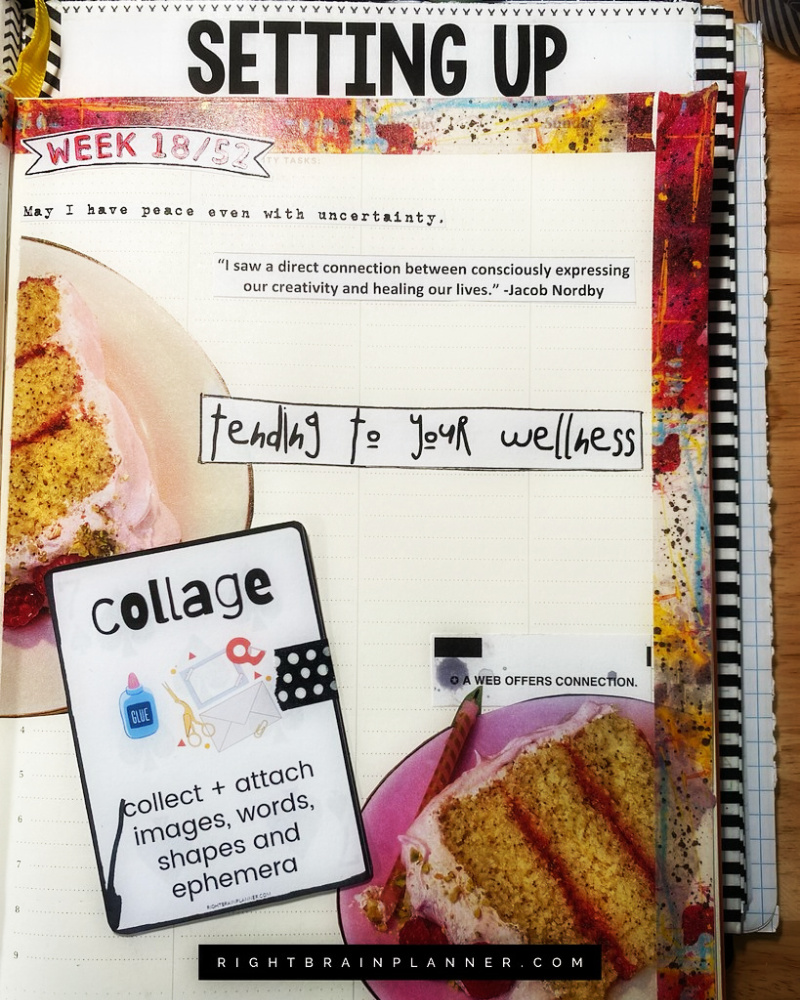 SETTING UP
WEEK 18/52
TY TASKS:
May I have peace even with uncertainty.
“I saw a direct connection between consciously expressing
our creativity and healing our lives.” -Jacob Nordby
tending to your wellness
collage
GLUE
collect + attach
images, words,
shapes and
ephemera
RIGHTBRAINPLANNER.COM
A WEB OFFERS CONNECTION.
4
5
6
7
8
9
RIGHTBRAINPLANNER.COM